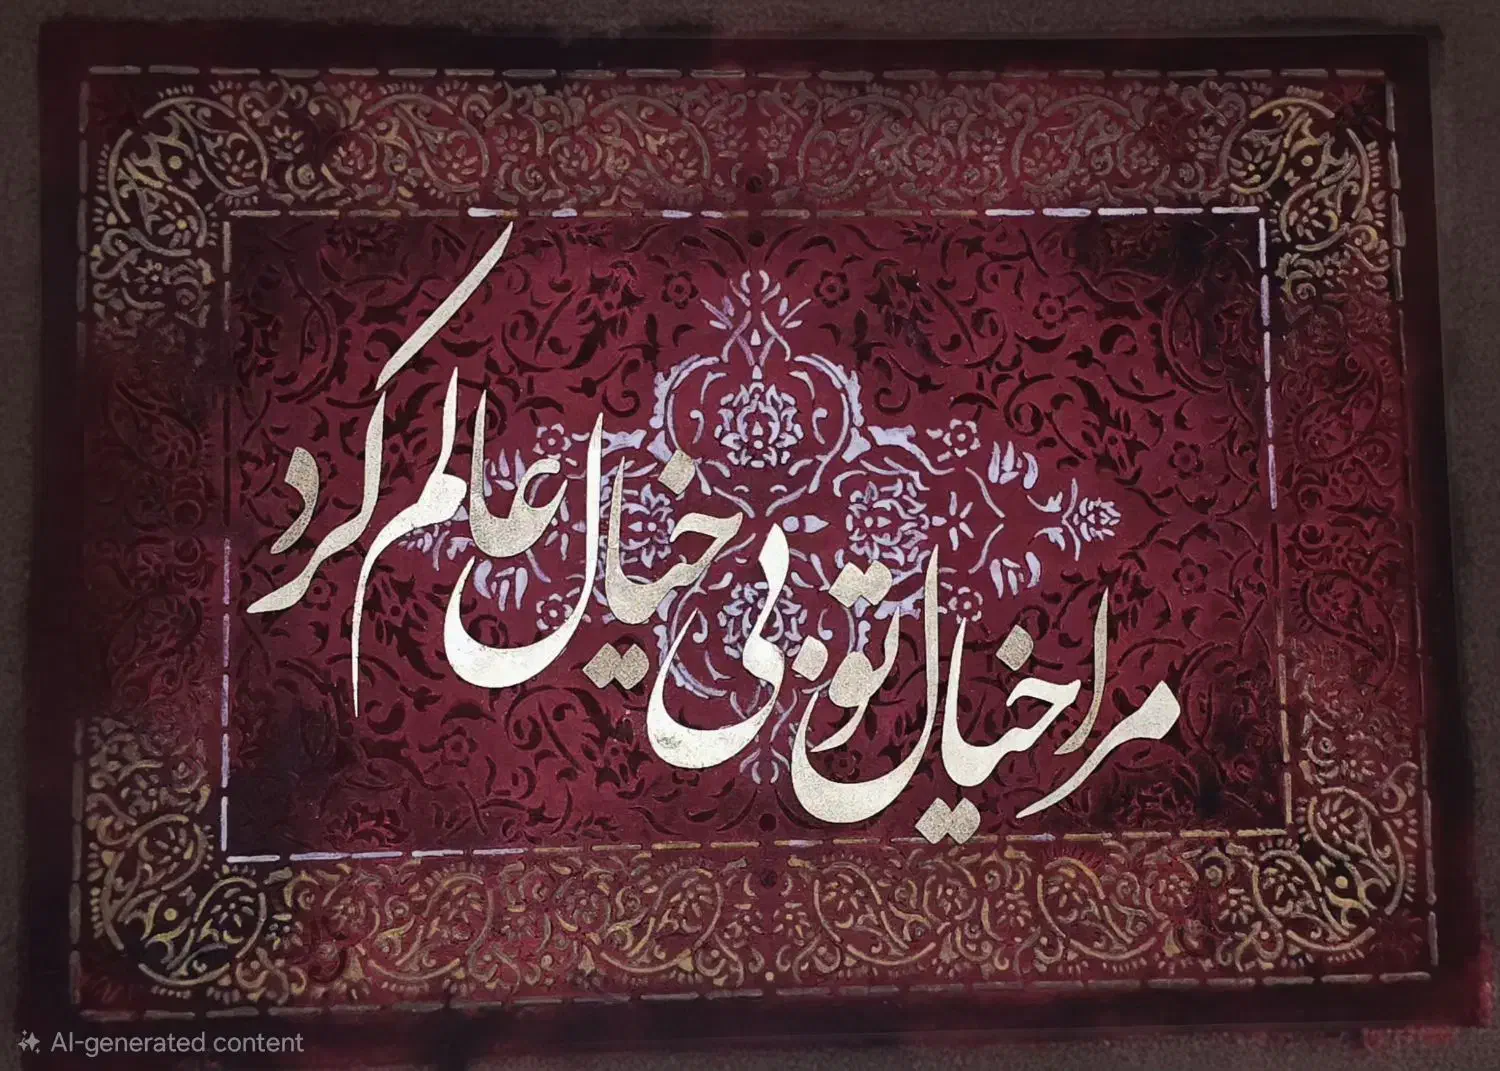 مرا خیال تو بی خیال عالم کرد
AI-generated content